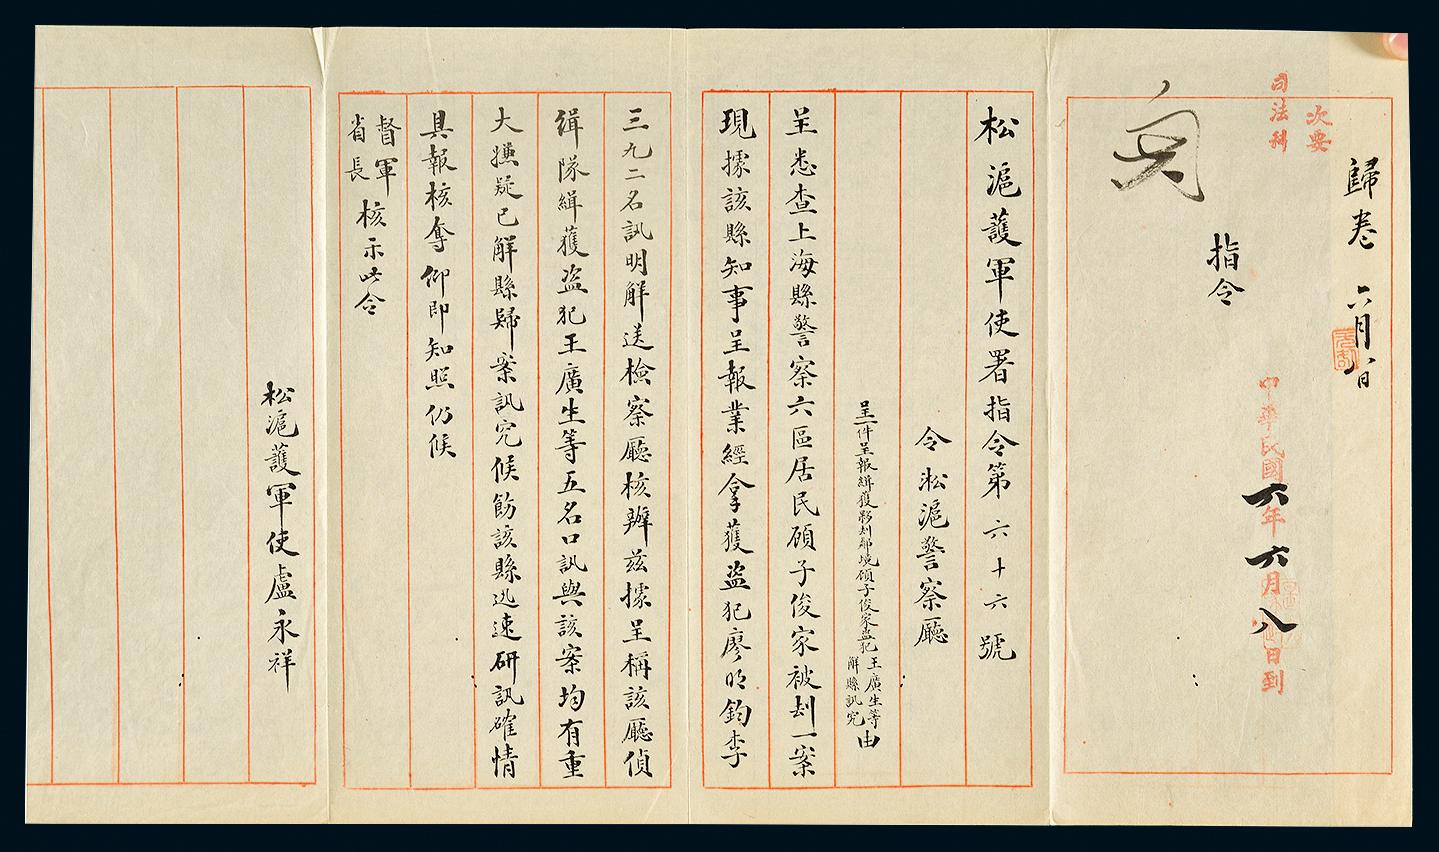 歸卷 六月八日
次要
司法科
中華民國六年六月八日到
指令
松滬護軍使署指令第六十六號
令淞滬警察廳
呈一件呈報緝獲夥刦鄰境碩子俊家盜犯王廣生等解縣訊究由
呈悉查上海縣警察六區居民碩子俊家被刦一案
現據該縣知事呈報業經拿獲盜犯廖明鈞李
三九二名訊明解送檢察廳核辦茲據呈稱該廳偵
緝隊緝獲盜犯王廣生等五名口訊與該案均有重
大嫌疑已解縣歸案訊究候飭該縣迅速研訊確情
具報核奪仰即知照仍候
督軍
省長
核示此令
松滬護軍使盧永祥